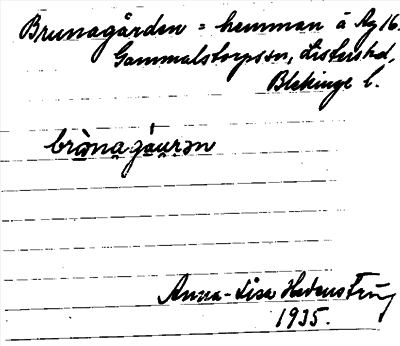 Brunagården = hemman å Ag 16.
Gammalstorps sn, Listers hd,
Blekinge l.
brònagǻu̯rən
Anna-Lisa Hedenström
1935.